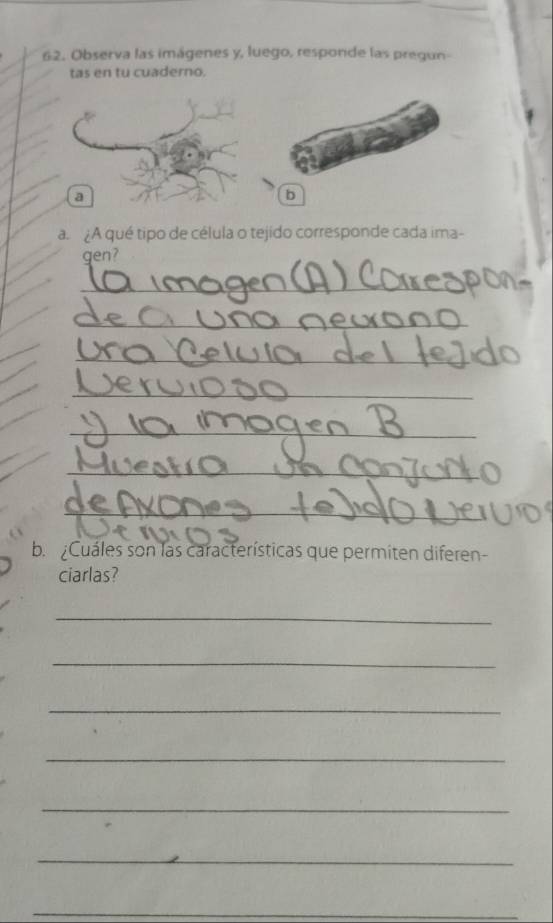 62. Observa las imágenes y, luego, responde las pregun-
tas en tu cuaderno.
a
b
a. ¿A qué tipo de célula o tejido corresponde cada ima-
gen?
la imagen (A) Correspon-
de a una neurona
una Celula del tejido
Nervioso
y la imagen B
Muestra un conjunto
de Axones tejido Nervios
Nervios
b. ¿Cuáles son las características que permiten diferen-
ciarlas?